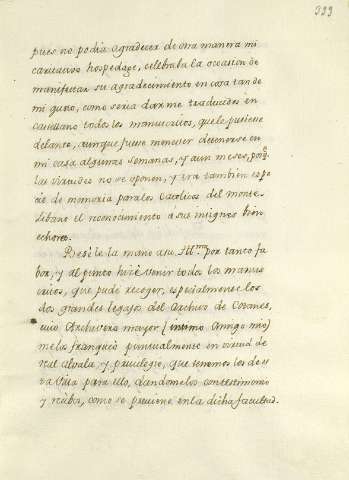 323
pues no podia agradecer de otra manera mi
caritativo hospedage, celebraba la occasion de
manifestar su agradecimiento en cosa tan de
mi gusto, como seria darme traducidos en
castellano todos los manuscritos, que le pusiese
delante, aunque fuese menester detenerse en
mi casa algunas semanas, y aun meses, porq.e
las virtudes no se oponen, y era tambien espe
cie de memoria para los Catolicos del monte
Libano el reconocimiento a sus insignes bien
echores.
Besé le la mano a su Ill.ma por tanto fa
bor, y al punto hicé venir todos los manus
critos, que pudé recoger, especialmente los
dos grandes legajos del Archivo de
cuio Archivero mayor (intimo Amigo mio)
melos franqueó puntualmente en virtud de
Real y privilegio, que tenemos los de
para ello, dandomelos con testimonio
y recibo, como se previene en la dicha facultad.